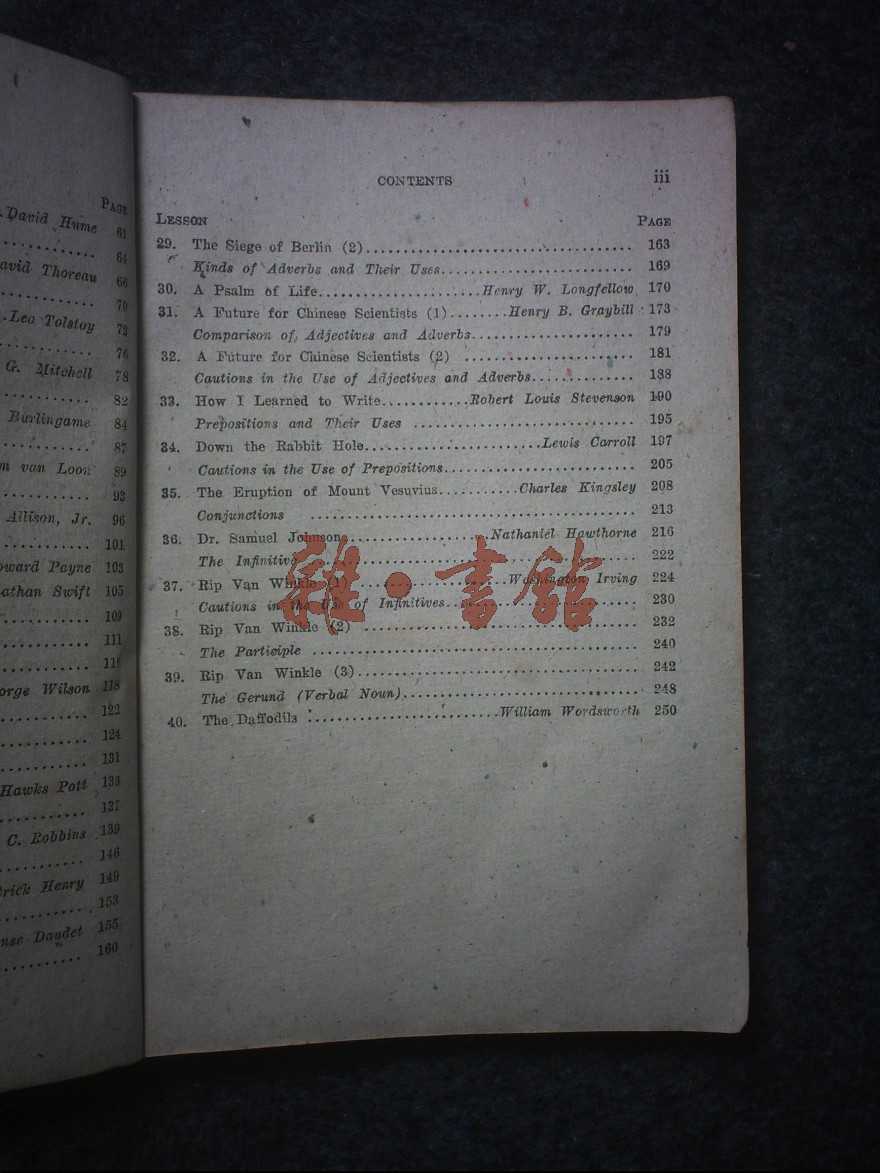 PAGE
David Hume 61
64
avid Thoreau 66
70
Leo Tolstoy 72
76
G. Mitchell 78
82
Burlingame 84
87
m van Loon 89
93
Allison, Jr. 96
101
oward Payne 103
athan Swift 105
109
111
116
orge Wilson 118
122
124
131
Hawks Pott 133
137
C. Robbins 139
146
trick Henry 149
153
nse Daudet 155
160
CONTENTS iii
LESSON PAGE
29. The Siege of Berlin (2) 163
Kinds of Adverbs and Their Uses 169
30. A Psalm of Life Henry W. Longfellow 170
31. A Future for Chinese Scientists (1) Henry B. Graybill 173
Comparison of Adjectives and Adverbs 179
32. A Future for Chinese Scientists (2) 181
Cautions in the Use of Adjectives and Adverbs 188
33. How I Learned to Write Robert Louis Stevenson 190
Prepositions and Their Uses 195
34. Down the Rabbit Hole Lewis Carroll 197
Cautions in the Use of Prepositions 205
35. The Eruption of Mount Vesuvius Charles Kingsley 208
Conjunctions 213
36. Dr. Samuel Johnson Nathaniel Hawthorne 216
The Infinitive 222
37. Rip Van Winkle (1) Washington Irving 224
Cautions in the Use of Infinitives 230
38. Rip Van Winkle (2) 232
The Participle 240
39. Rip Van Winkle (3) 242
The Gerund (Verbal Noun) 248
40. The Daffodils William Wordsworth 250
雜·書館